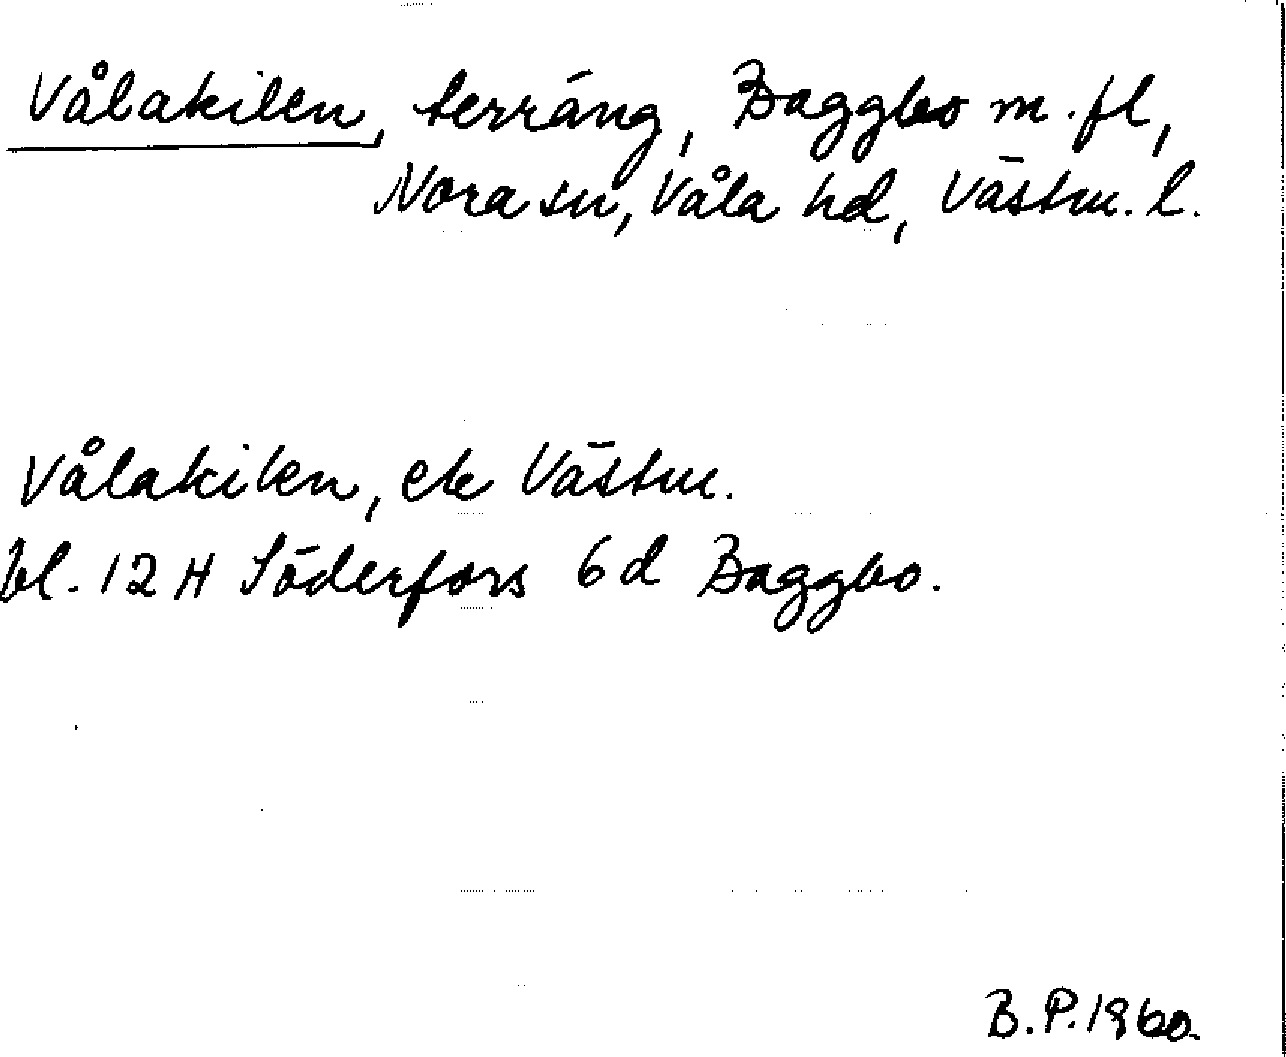 Vålakilen, terräng, Baggbo m.fl,
Nora sn, Våla hd, Västm. l.
Vålakilen, ek Västm.
bl. 12 H Söderfors 6 d Baggbo.
B.P. 1960.